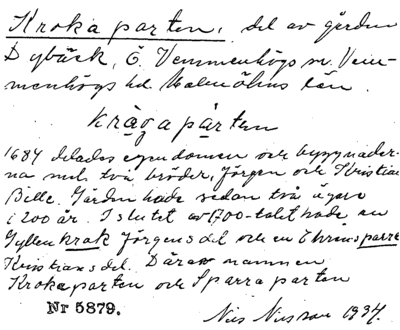 Krokaparten, del av gården
Dybäck, Ö. Vemmenhögs sn. Vem-
menhögs hd. Malmöhus län.
krågapärten
1684 delades egendomen och byggnader-
na mel. två bröder, Jörgen och Kristian
Bille. Gården hade sedan två ägare
i 200 år. I slutet av 1700-talet hade en
Gyllenkrak Jörgens del och en Ehrensparre
Kristians del. Därav namnen
Krokaparten och Sparraparten
Nr 5879.
Nils Nilsson 1934.